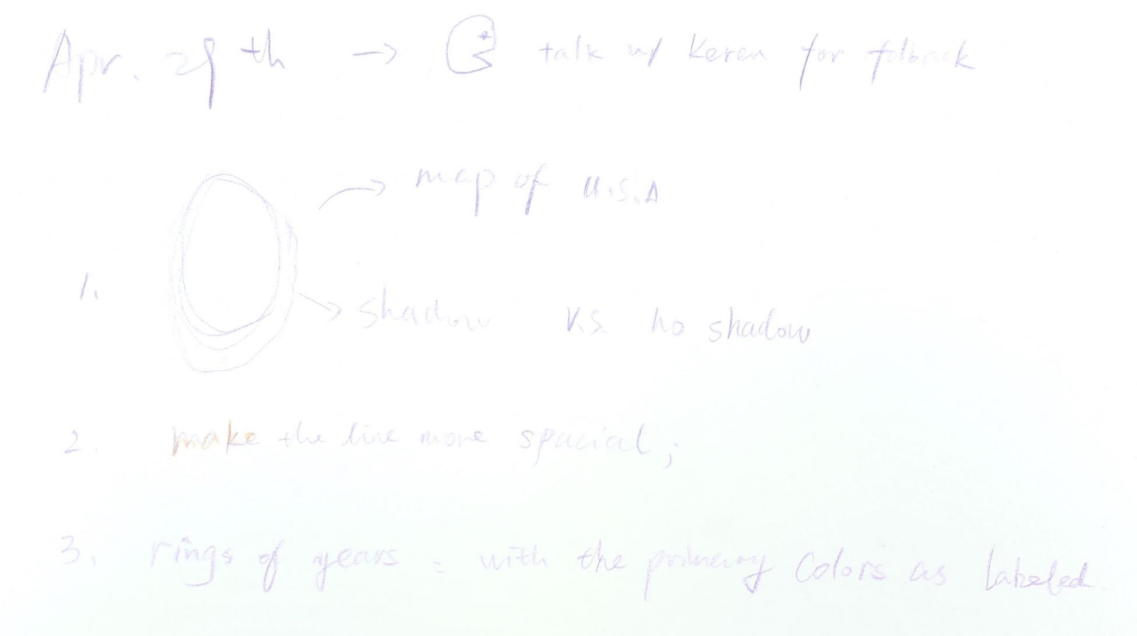 Apr. 29th → talk w/ Keren for fedback
→ map of U.S.A
1.
→ shadow VS. no shadow
2. make the line more spacial;
3. rings of years = with the primary colors as labeled.